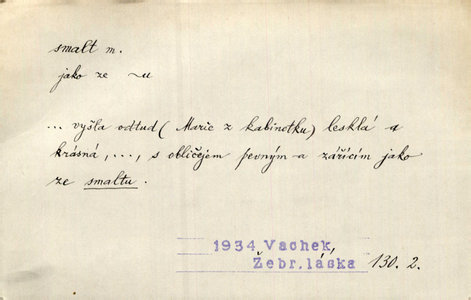 smalt m.
jako ze ~u
... vyšla odtud (Marie z kabinetku) lesklá a
krásná, ..., s obličejem pevným a zářícím jako
ze smaltu.
1934 Vachek,
Žebr. láska 130. 2.